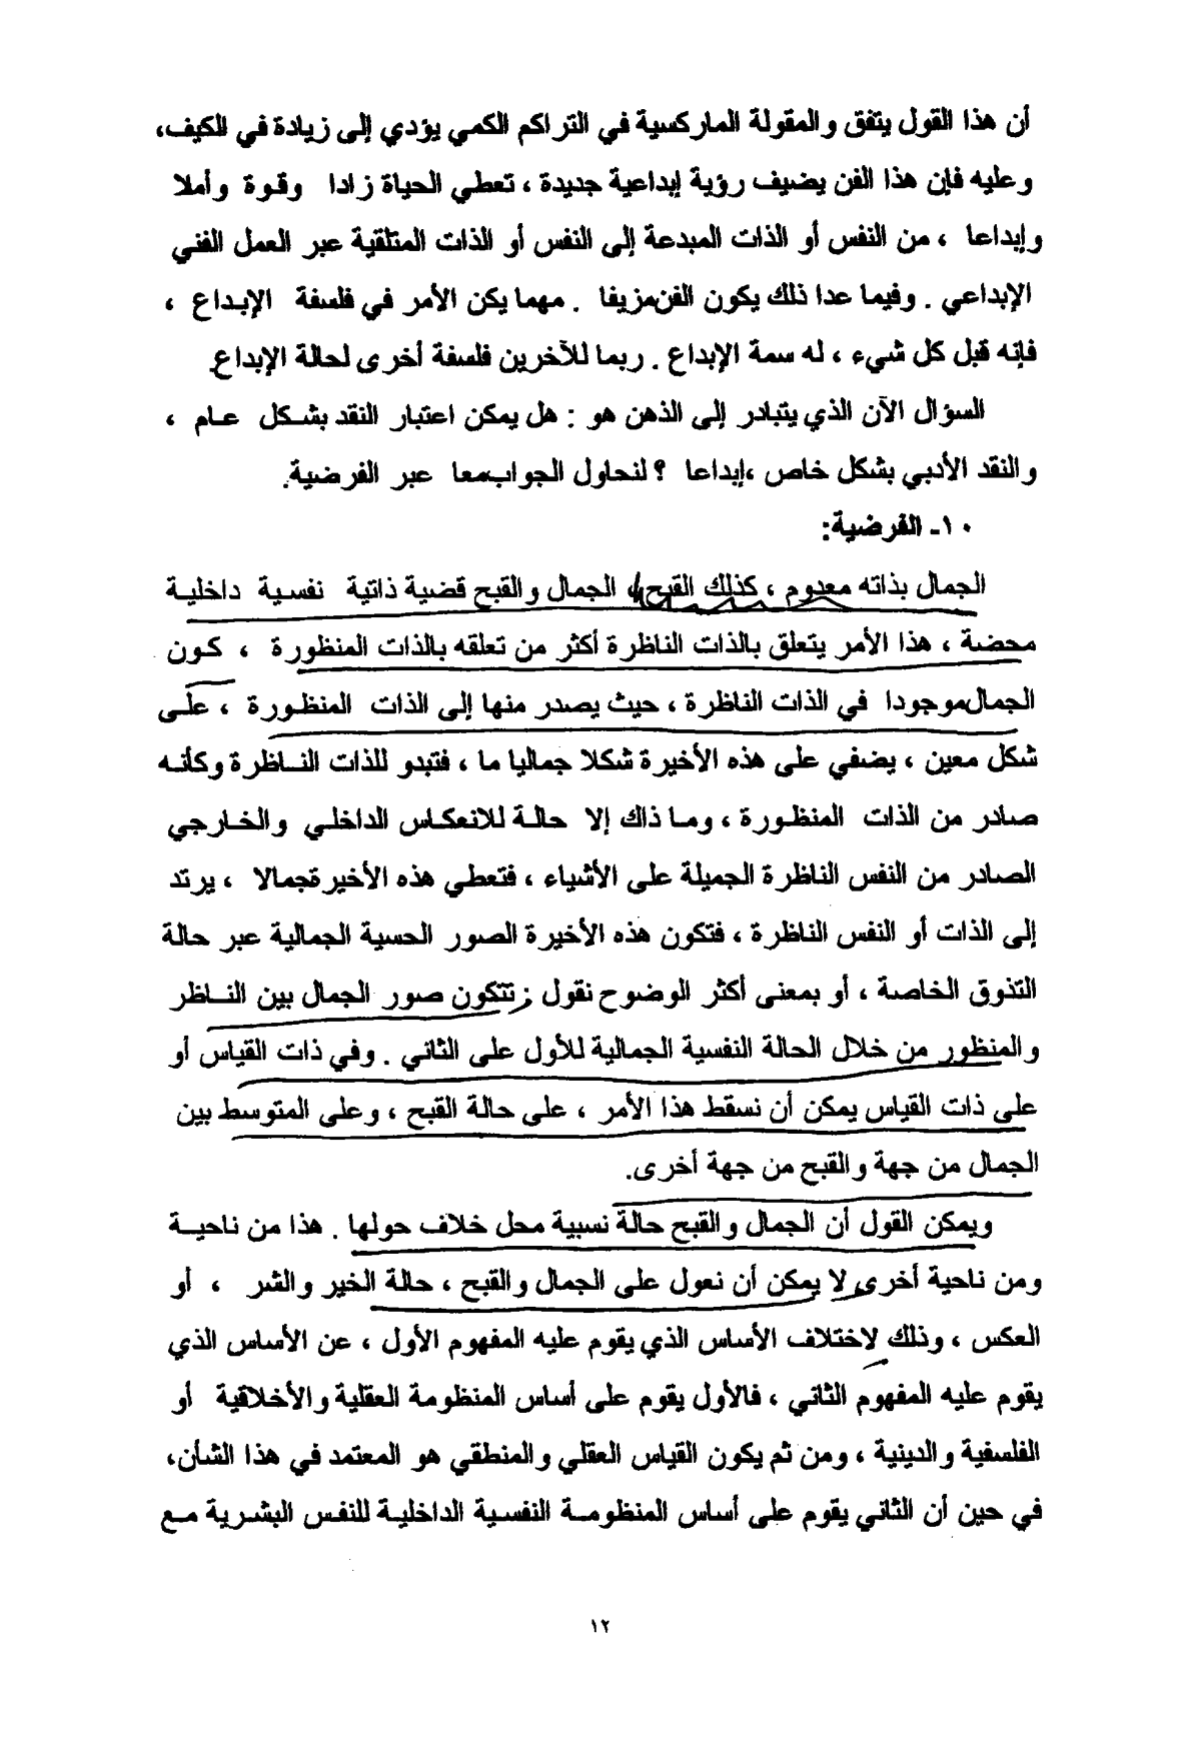 أن هذا القول يتفق والمقولة الماركسية في التراكم الكمي يؤدي إلى زيادة في الكيف،
وعليه فإن هذا الفن يضيف رؤية إبداعية جديدة ، تعطي الحياة زادا وقوة وأملا
وإبداعا ، من النفس أو الذات المبدعة إلى النفس أو الذات المتلقية عبر العمل الفني
الإبداعي . وفيما عدا ذلك يكون الفن مزيفا . مهما يكن الأمر في فلسفة الإبداع ،
فإنه قبل كل شيء ، له سمة الإبداع . ربما للآخرين فلسفة أخرى لحالة الإبداع.
السؤال الآن الذي يتبادر إلى الذهن هو : هل يمكن اعتبار النقد بشكل عام ،
والنقد الأدبي بشكل خاص ،إبداعا ؟ لنحاول الجواب معا عبر الفرضية.
١٠- الفرضية:
الجمال بذاته معدوم ، كذلك القبح، الجمال والقبح قضية ذاتية نفسية داخلية
محضة ، هذا الأمر يتعلق بالذات الناظرة أكثر من تعلقه بالذات المنظورة ، كون
الجمال موجودا في الذات الناظرة ، حيث يصدر منها إلى الذات المنظورة ، على
شكل معين ، يضفي على هذه الأخيرة شكلا جماليا ما ، فتبدو للذات الناظرة وكأنه
صادر من الذات المنظورة ، وما ذاك إلا حالة للانعكاس الداخلي والخارجي
الصادر من النفس الناظرة الجميلة على الأشياء ، فتعطي هذه الأخيرة جمالا ، يرتد
إلى الذات أو النفس الناظرة ، فتكون هذه الأخيرة الصور الحسية الجمالية عبر حالة
التذوق الخاصة ، أو بمعنى أكثر الوضوح نقول : تتكون صور الجمال بين الناظر
والمنظور من خلال الحالة النفسية الجمالية للأول على الثاني . وفي ذات القياس أو
على ذات القياس يمكن أن نسقط هذا الأمر ، على حالة القبح ، وعلى المتوسط بين
الجمال من جهة والقبح من جهة أخرى.
ويمكن القول أن الجمال والقبح حالة نسبية محل خلاف حولها . هذا من ناحية
ومن ناحية أخرى لا يمكن أن نعول على الجمال والقبح ، حالة الخير والشر ، أو
العكس ، وذلك لاختلاف الأساس الذي يقوم عليه المفهوم الأول ، عن الأساس الذي
يقوم عليه المفهوم الثاني ، فالأول يقوم على أساس المنظومة العقلية والأخلاقية أو
الفلسفية والدينية ، ومن ثم يكون القياس العقلي والمنطقي هو المعتمد في هذا الشأن،
في حين أن الثاني يقوم على أساس المنظومة النفسية الداخلية للنفس البشرية مع
١٢